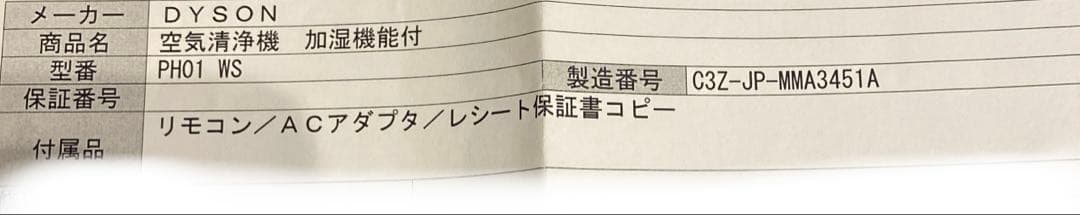 メーカー ＤＹＳＯＮ
商品名 空気清浄機　加湿機能付
型番 PH01 WS 製造番号 C3Z-JP-MMA3451A
保証番号
付属品 リモコン／ＡＣアダプタ／レシート保証書コピー